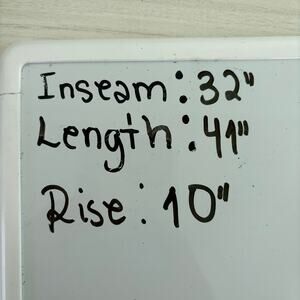 Inseam: 32"
Length: 41"
Rise: 10"